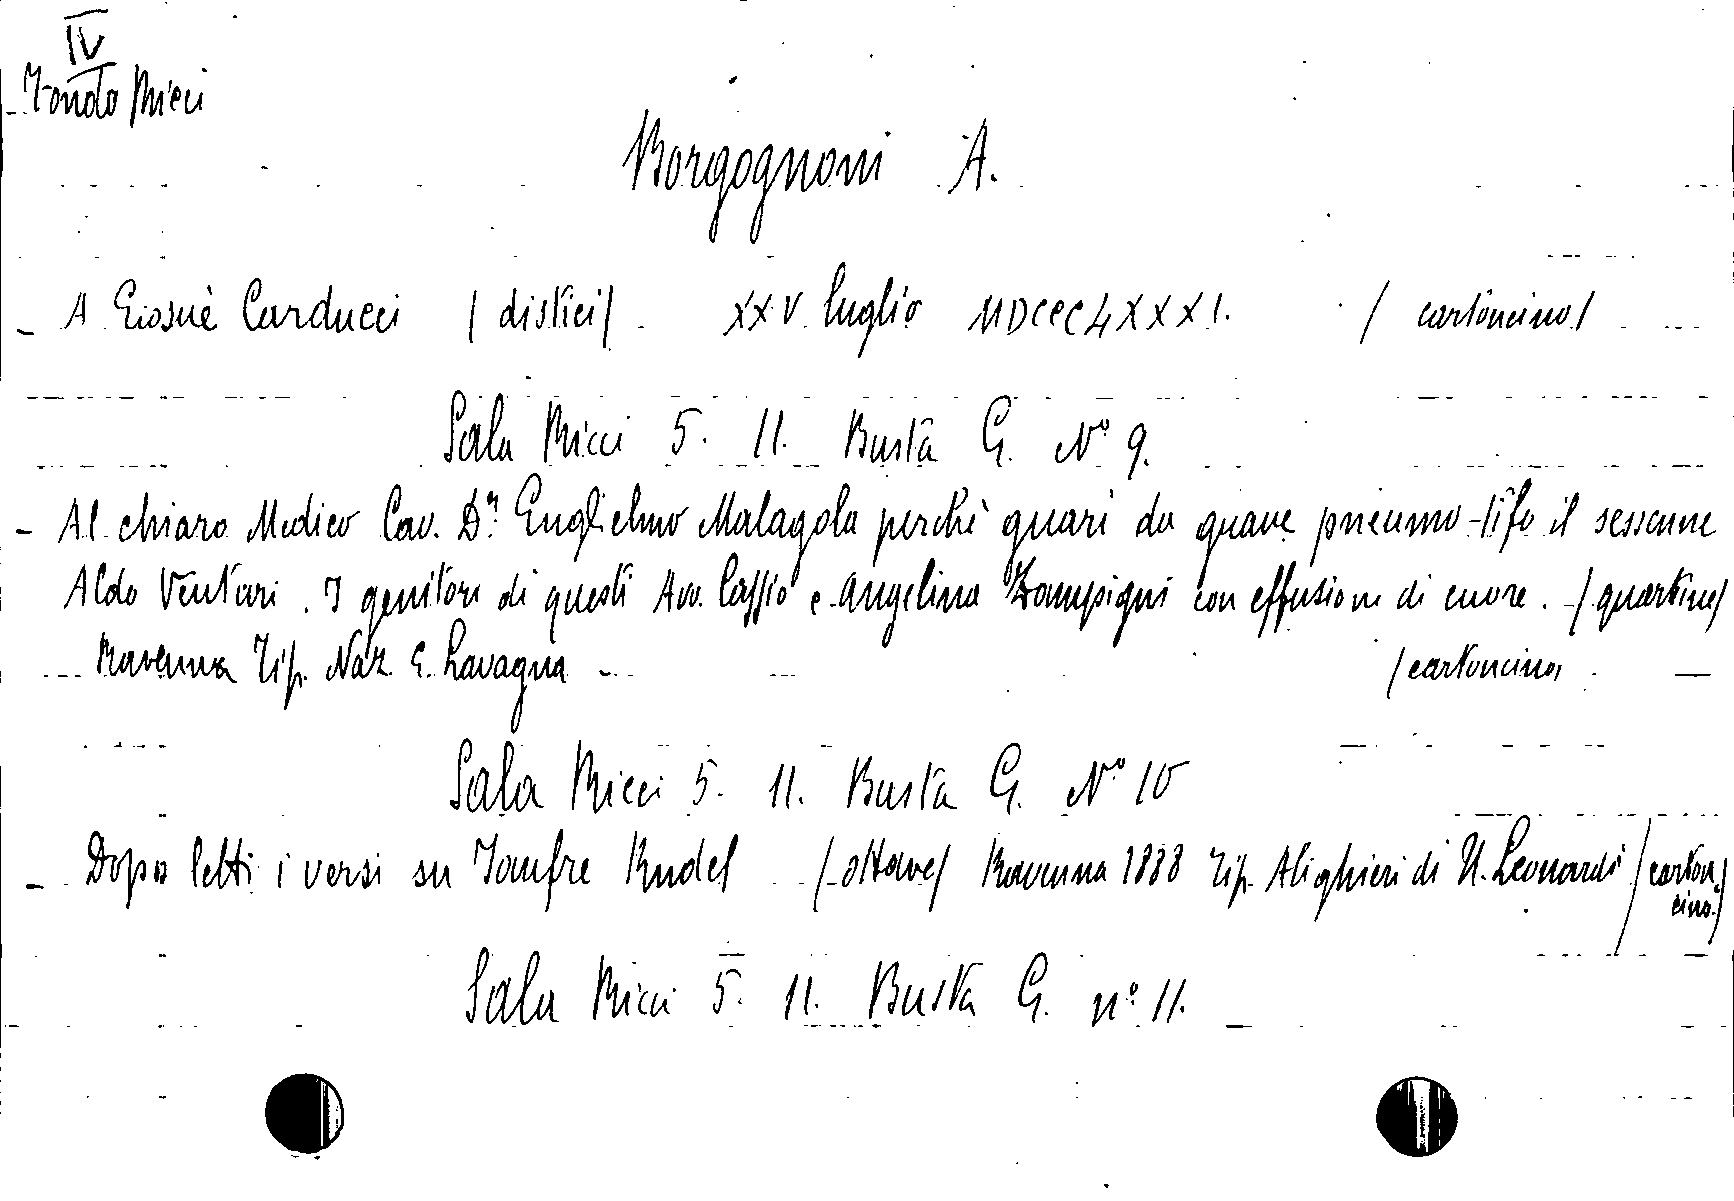 IV
Fondo Ricci
Borgognoni A.
- A Giosuè Carducci (distici) XXV luglio MDCCCLXXXI. (cartoncino)
Sala Ricci 5. 11. Busta G. N° 9.
- Al chiaro Medico Cav. Dr. Guglielmo Malagola perchè guarì da grave pneumo-tifo il sessenne
Aldo Venturi. I genitori di questi Avv. Cassio e Angelina Zampigni con effusione di cuore. (quartine)
Ravenna Tip. Naz. E. Lavagna (cartoncino)
Sala Ricci 5. 11. Busta G. N° 10
- Dopo letti i versi su Jaufre Rudel (ottave) Ravenna 1888 Tip. Alighieri di U. Leonardi (carton-
cino.)
Sala Ricci 5. 11. Busta G. n° 11.